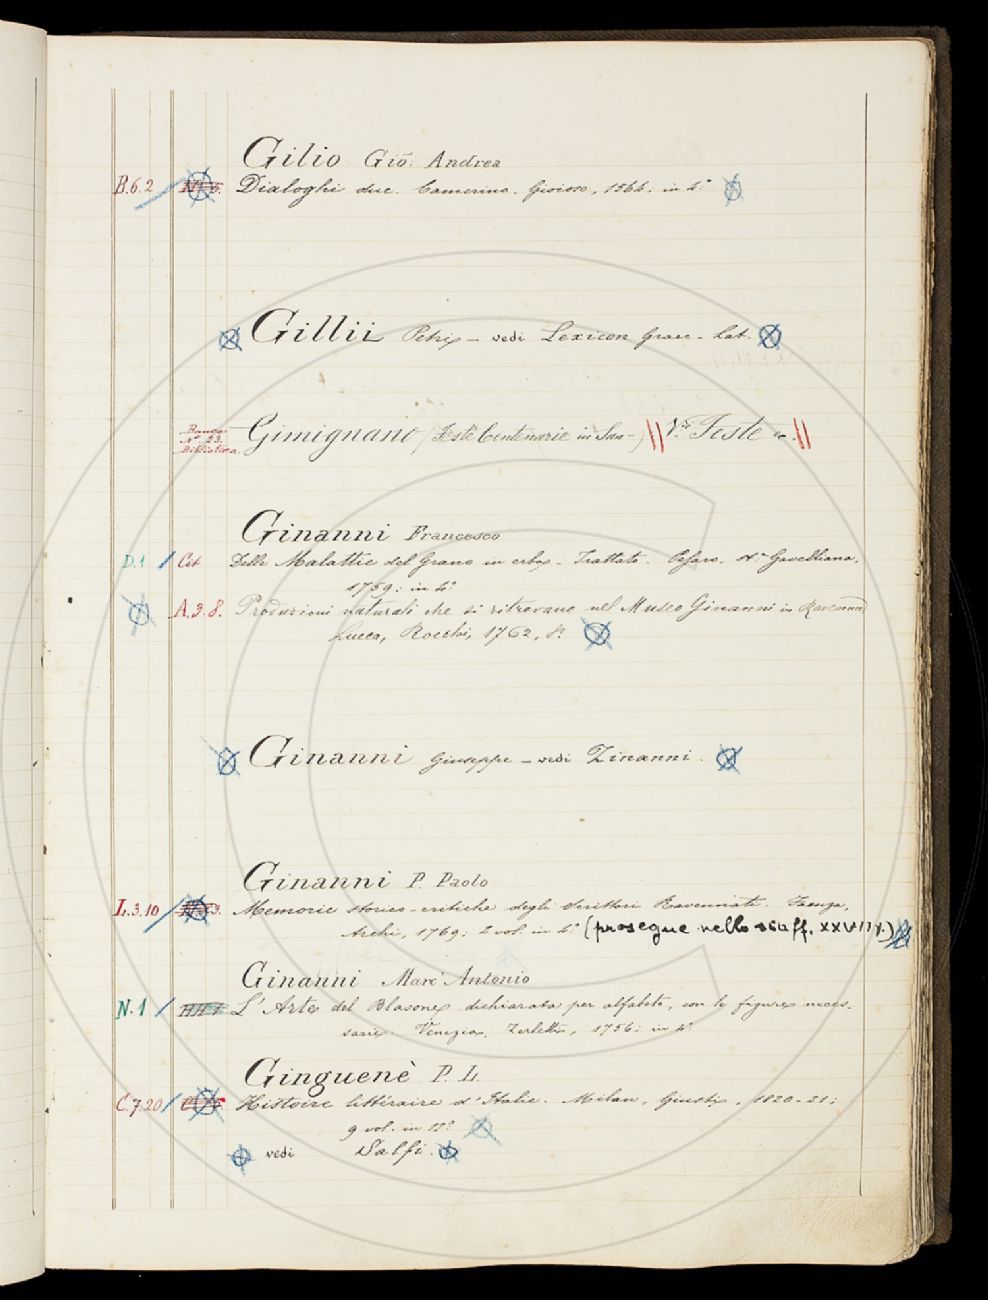 Gilio Gio: Andrea
B.6.2 Dialoghi due. Camerino, Gioioso, 1564; in 4.°
Gillii Petri – vedi Lexicon Graec-Lat.
Banco
N° 23.
Biblioteca.
Gimignano (Feste Centenarie in San-) V. Feste
Ginanni Francesco
D.1 Cit Delle Malattie del Grano in erba. Trattato. Pesaro, Gavelliana,
1759; in 4°
A.3.8. Produzioni naturali che si ritrovano nel Museo Ginanni in Ravenna
Lucca, Rocchi, 1762, 8°
Ginanni Giuseppe – vedi Zinanni.
Ginanni P. Paolo
L.3.10 Memorie storico-critiche degli Scrittori Ravennati. Faenza,
Archi, 1769; 2 vol. in 4.° (prosegue nello scaff.
Ginanni Marc'Antonio
N.1 L'Arte del Blasone dichiarata per alfabeto, con le figure neces-
sarie. Venezia, Zerletti, 1756; in 4°
Ginguenè P. L.
C.7.20 Histoire littéraire d'Italie. Milan, Giusti, 1820-21;
9 vol. in 12°
vedi Salfi.